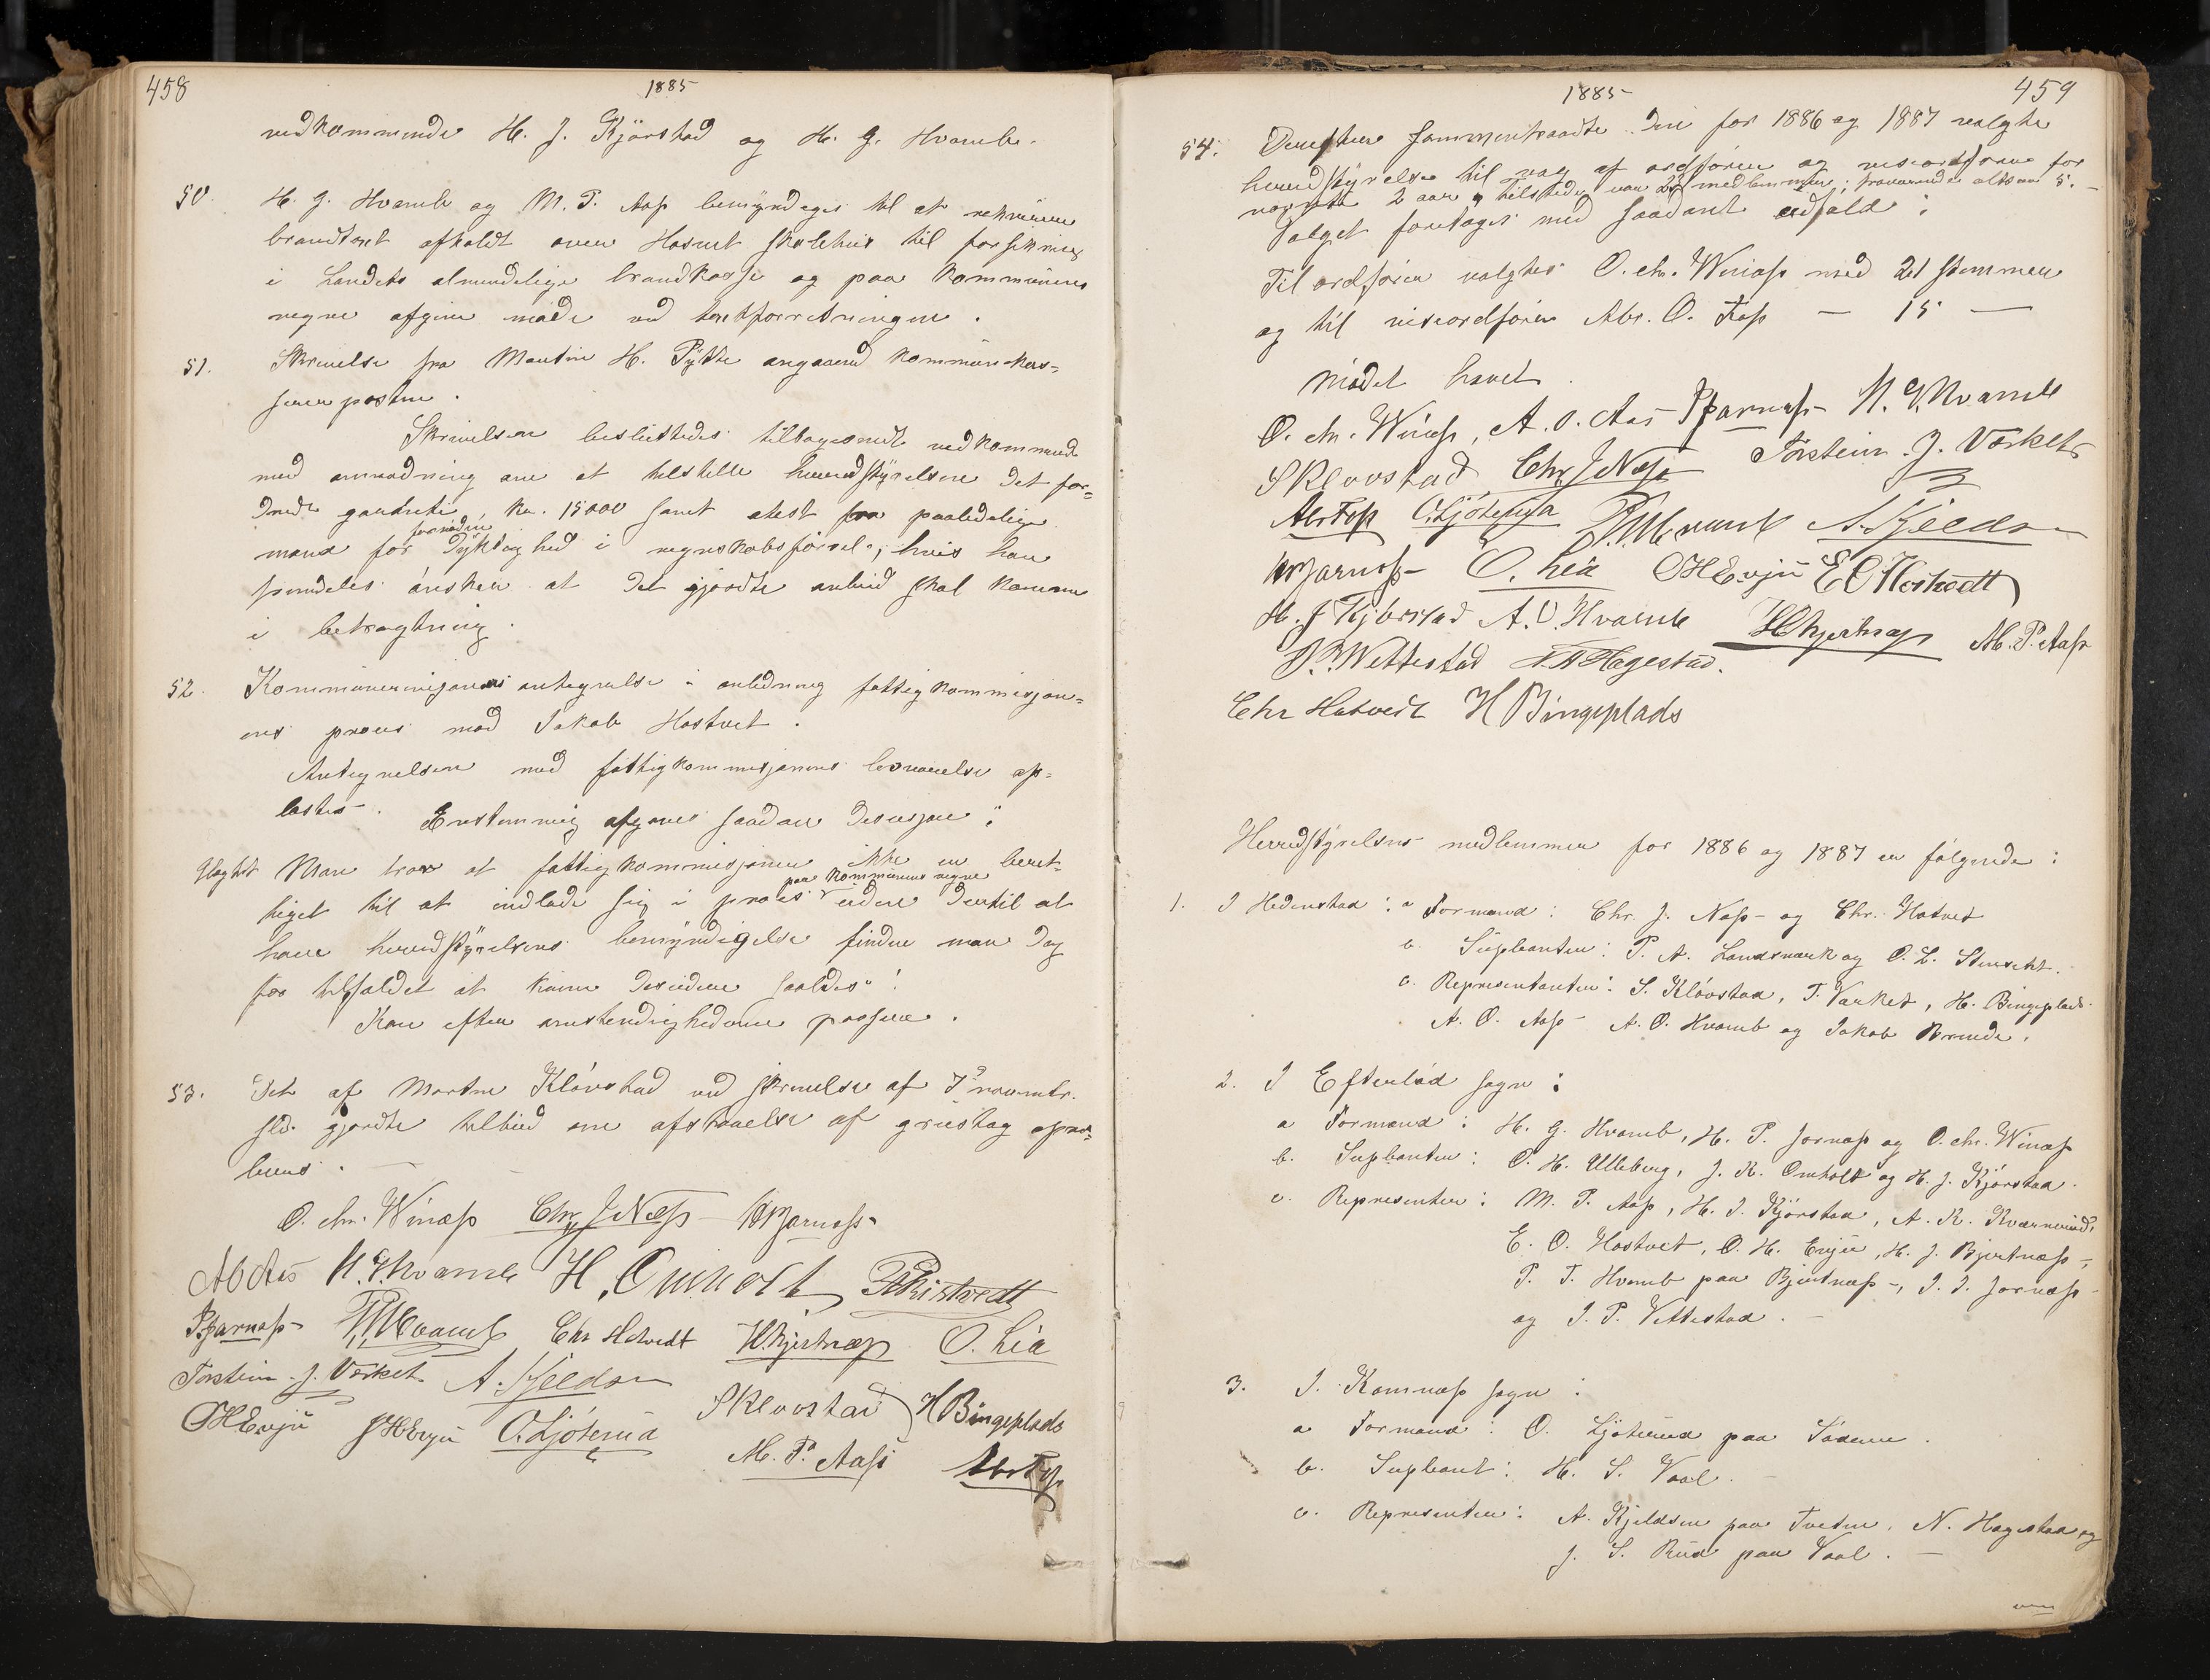 458
1885
vedkommende H. J. Kjörstad og H. G. Hvamb.
50. H. G. Hvamb og M. P. Aas bemyndiges til at rekvirere
brandtaxt afholdt over Hostvet skolehus til forsikring
i Landets almindelige brandkasse og paa kommunens
vegne afgive möde ved taxtforretningen.
51. Skrivelse fra Martin H. Pytte angaaend kommunekas=
serer posten.
Skrivelsen besluttedes tilbagesendt vedkommende
med anmodning om at tilstille herredstyrelsen det for=
drede garanti, kr. 15000 samt atest fra paalidelige
mænd for fornöden dyktighed i regnskabsförsel, hvis han
fremdeles önsker at det gjordte anbud skal komme
i betragtning.
52. Kommunerevisjonens antegnelse i anledning fattigkommisjon=
ens proces mod Jakob Hostvet.
Antegnelsen med fattigkommisjonens besvarelse op=
læstes. Enstemmig afgaves saadan desisjon:
Utagtet Man tror at fattigkommisjonen ikke er beret=
tiget til at indlade sig i proces paa kommunens vegne uden dertil at
have herredstyrelsens bemyndigelse finder man dog
for tilfældet at kunne desidere saaledes:
Kan efter omstendighederne passere.
53. Det af Martin Klövstad ved skrivelse af 7de novembr.
sld. gjordte tilbud om afstaaelse af grustag
O. Chr. Winæss Chr. J Næss HPJarnæss
AOAas H. G. Hvamb H. Omholt
PJarnæss Chr Hotvedt HBjertnæss O. Lia
Torstein J. Værket A. Kjeldsen SKlovstad HBingeplads
OHEvju JHEvju O. Ljöterud M. P. Aass AbrFoss
1885
459
54. Derefter sammentraadte den for 1886 og 1887 valgte
herredstyrelse til valg af ordförer og viseordförer for
nævnte 2 aar, tilstede var 23 medlemmer; fraværende altsaa 5.
Valget foretoges med saadant udfald:
Til ordförer valgtes O. Chr. Winæss med 21 stemmer
og til viseordförer Abr. O. Foss — 15 —
Mödet hævet.
O. Chr. Winæss, A. O. Aas PJarnæss H. G. Hvamb
SKlovstad Chr. J Næss Torstein J. Værket
AbrFoss O. Ljöterud A. Kjeldsen
HPJarnæss O. Lia OHEvju E O Hostvedt
H. J Kjörstad A. O. Hvamb HBjertnæss M. P. Aass
J. P. Wettestad N. N Hagestad.
Chr Hotvedt H Bingeplads
Herredstyrelsens medlemmer for 1886 og 1887 er fölgende:
1. I Hedenstad: a Formænd: Chr. J. Næss og Chr. Hotvet
b. Supleanter: P. A. Landsværk og O. L. Stensebt.
c. Representanter: S. Klövstad, T. Værket, H. Bingeplads
A. O. Aass A. O. Hvamb og Jakob Brunde.
2. I Efterlöd sogn:
a Formænd: H. G. Hvamb, H. P. Jornæss og O. Chr. Winæss
b. Supleanter: O. H. Ulleberg, J. K. Omholt og H. J. Kjörstad.
c. Representer: M. P. Aass, H. J. Kjörstad, A. K. Kværnerud,
E. O. Hostvet, O. H. Evju, H. J. Bjertnæss,
P. T. Hvamb paa Bjertnæss, J. J. Jornæss
og J. P. Vettestad.
3. I. Komnæss sogn:
a Formænd: O. Ljöterud paa
b. Supleant: H. S. Vaal.
c. Representer: A. Kjeldsen paa Tveten, N. Hagestad og
J. S. Rud paa Vaal.